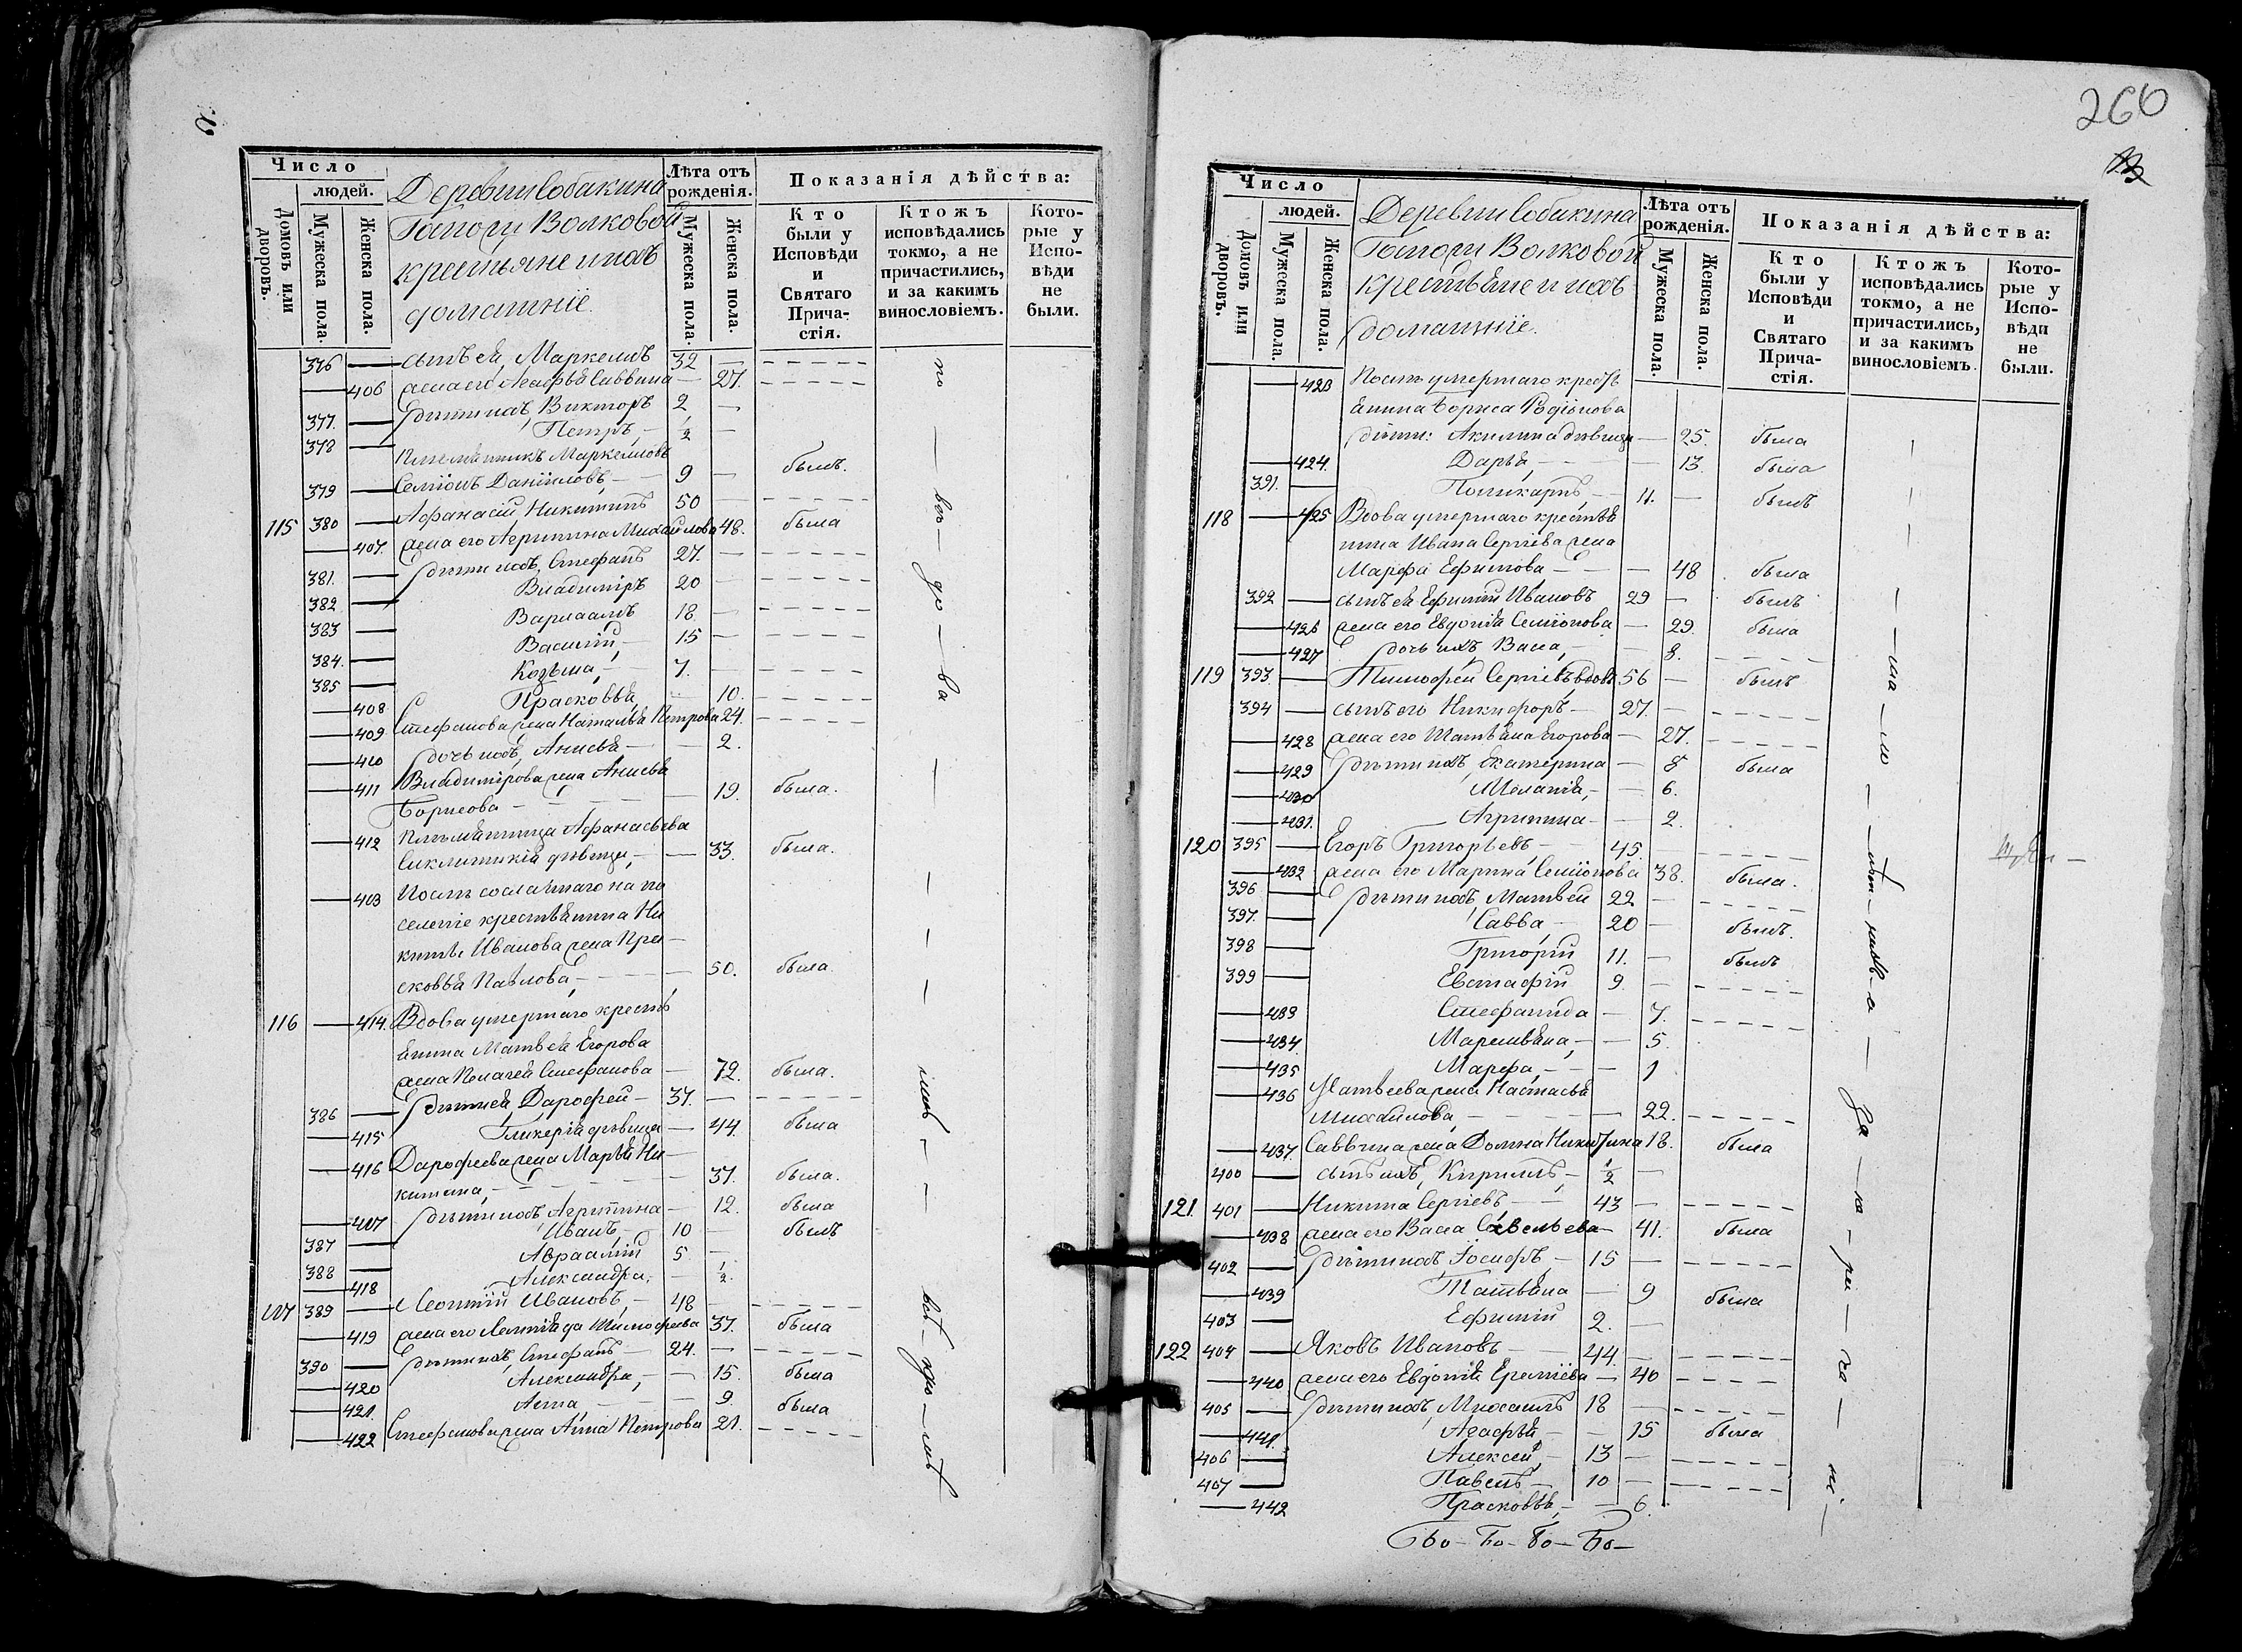 Число
людей.
Домовъ или дворовъ.
Мужеска пола.
Женска пола.
Деревни Собакина
Госпожи Волковой
крестьяне и ихъ
домашніе.
Лѣта отъ рожденія.
Мужеска пола.
Женска пола.
Показанія дѣйства:
Кто были у Исповѣди и Святаго Прича-стія.
Ктожъ исповѣдались токмо, а не причастились, и за какимъ винословіемъ.
Кото-рые у Испо-вѣди не были.
376 — сынъ ея, Маркеллъ 32 —
— 406 жена его Агафья Саввина — 27.
377. — дѣти ихъ, Викторъ 2 —
378 — Петръ, — 1/2 —
Племянникъ Маркелловъ
379 — Семіонъ Даніиловъ, — 9 — былъ.
115 380 — Афанасій Никитинъ 50 —
— 407. жена его Агрипина Михайлова 48. была
381. — дѣти ихъ, Стефанъ 27. —
382 — Владиміръ 20 —
383 — Варлаамъ 18. —
384. — Василій, — 15 —
385 — Козьма, — 7. —
— 408 Прасковья, — 10.
— 409 Стефанова жена Наталья Петрова 24.
— 410 дочь ихъ, Анисья — — 2.
— 411 Владимірова жена Анисья
Борисова — — 19. была.
— 412 Племянница Афанасьева
Сиклитикія дѣвица, — — 33. была.
— 413 Послѣ сосланнаго на по
селеніе крестьянина Ни
киты Иванова жена Пра—
сковья Павлова, — — 50. была
116 — 414. Вдова умершаго кресть
янина Матвея Егорова
жена Пелагея Стефанова — 72. была.
386 — дѣти ея Дарофей — 37. —
— 415 Гликерія дѣвица — 44. была
— 416 Дарофеева жена Марья Ни—
китина, — — 37. была.
— 417 дѣти ихъ, Агрипина — 12. была
387 — Иванъ — 10 — былъ
388 — Авраамій 5 —
— 418 Александра, — 1/2.
117 389 — Леонтій Ивановъ, — 48 —
— 419 жена его Тимофеева 37. была
390 — дѣти ихъ, Стефанъ — 24. —
— 420 Александра, — — 15. была
— 421. Анна, — — 9. была
— 422 Стефанова жена Анна Петрова 21.
по — воз — до — ва
266
Число
людей.
Домовъ или дворовъ.
Мужеска пола.
Женска пола.
Деревни Собакина
Госпожи Волковой
крестьяне и ихъ
домашніе.
Лѣта отъ рожденія.
Мужеска пола.
Женска пола.
Показанія дѣйства:
Кто были у Исповѣди и Святаго Прича-стія.
Ктожъ исповѣдались токмо, а не причастились, и за какимъ винословіемъ.
Кото-рые у Испо-вѣди не были.
— 423 Послѣ умершаго кресть
янина Бориса Родіонова
дѣти: Акилина дѣвица — 25. была
— 424. Дарья, — — 13. была
391. — Поликарпъ, — 11. — былъ
118 — 425 Вдова умершаго крестья
нина Ивана Сергіева жена
Марфа Ефимова — — 48 была
392 — сынъ ея Ефимій Ивановъ 29 — былъ
— 426 жена его Евдокія Семіонова — 29. была
— 427 дочь ихъ, Васса, — — 8.
119 393. — Тимофей Сергіевъ вдовъ 56 — былъ
394 — сынъ его Никифоръ — 27. —
— 428 жена его Татьяна Егорова — 27.
— 429 дѣти ихъ, Екатерина — 8 была
— 430 Меланія, — — 6.
— 431. Агрипина — — 2.
120 395 — Егоръ Григорьевъ, — 45.
— 432 жена его Марина Семіонова 38. была.
396 — дѣти ихъ, Матвей 22 —
397. — Савва, — 20 — былъ.
398 — Григорій 11. — былъ
399 — Евстафій 9. —
— 433 Стефанида — 7.
— 434. — 5.
— 435 Марфа, — — 1
— 436 Матвеева жена Настасья
Михайлова, — — 22.
— 437. Саввина жена Домна Никитина 18. была
400 — сынъ ихъ, Кириллъ, — 1/2 —
121. 401 — Никита Сергіевъ — 43 —
— 438 жена его Васса Савельева — 41. была
402 — дѣти ихъ, Іосифъ, — 15 —
— 439 Татьяна — 9 была
403 — Ефимій 2. —
122 404 — Яковъ Ивановъ — 44. —
— 440 жена его Евдокія — 40
405 — дѣти ихъ, Михаилъ 18 —
— 441. Агафья, — — 15 была
406 — Алексей, — 13 —
407 — Павелъ — 10 —
— 442 Прасковья, — — 6.